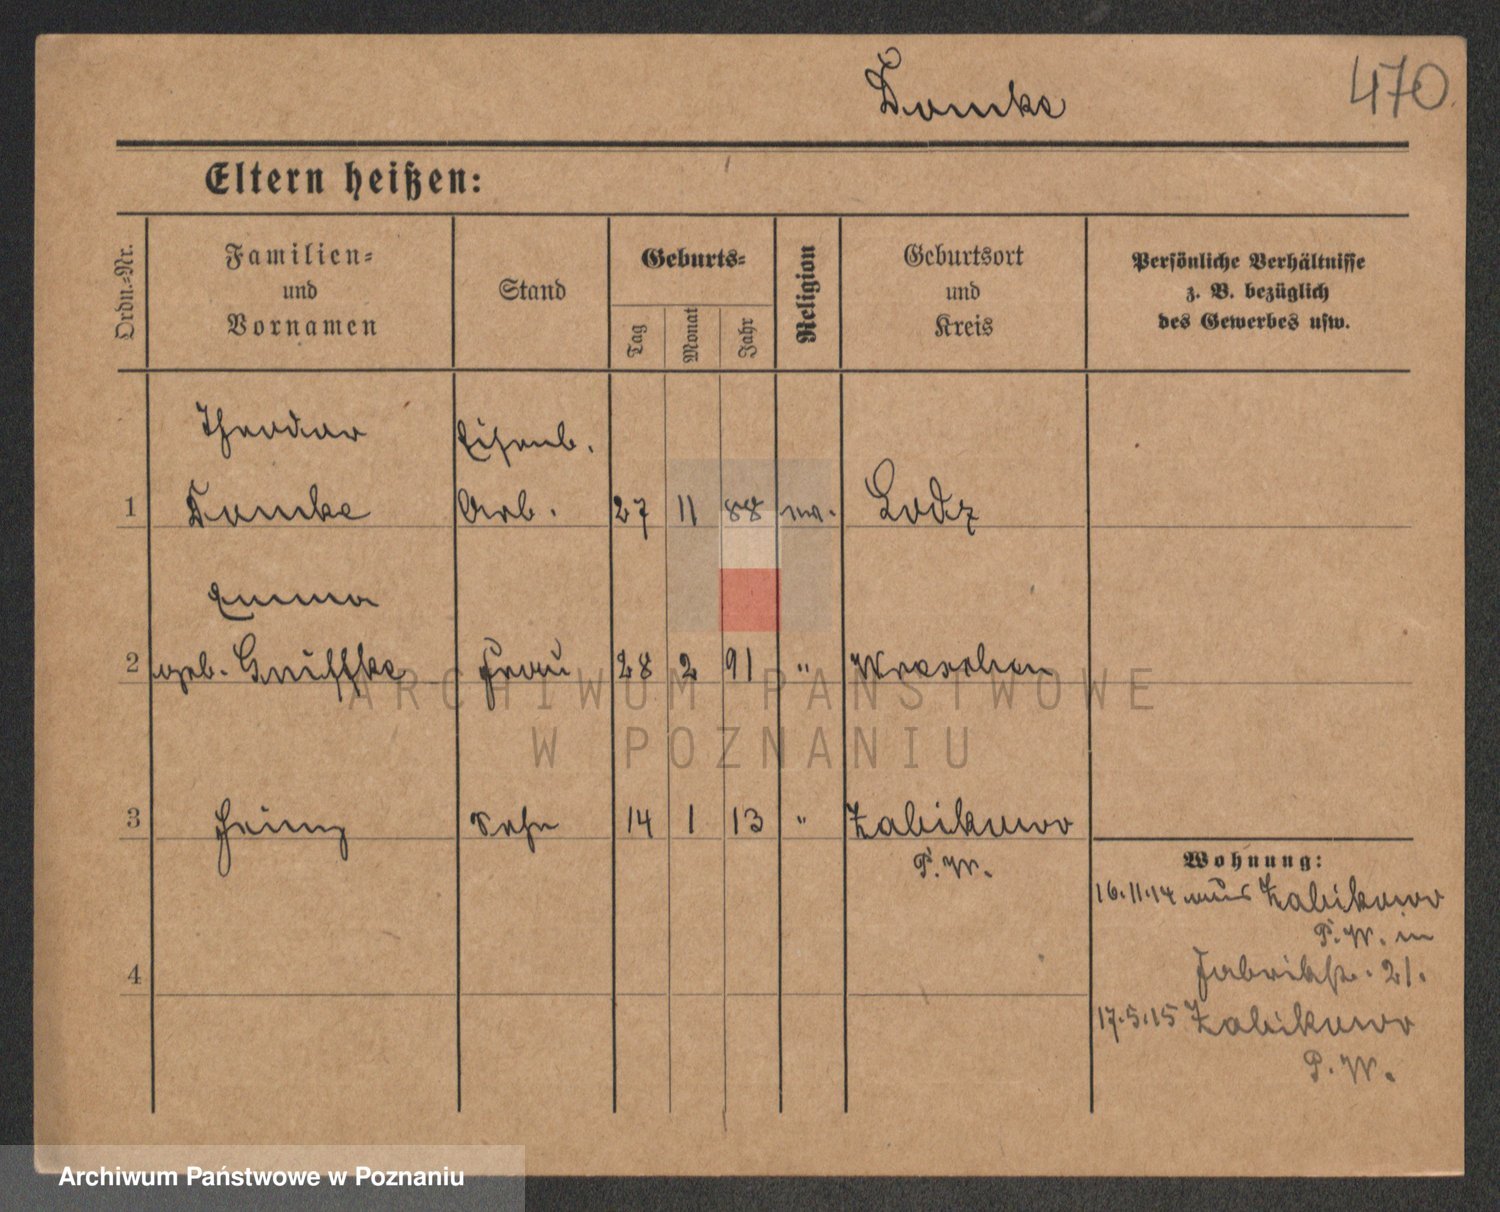 Domke
470
Eltern heißen:
Ordn.=Nr.
Familien=
und
Vornamen
Stand
Geburts=
Tag
Monat
Jahr
Religion
Geburtsort
und
Kreis
Persönliche Verhältnisse
z. B. bezüglich
des Gewerbes usw.
Theodor Eisenb.
1 Domke Arb. 27 11 88 ev. Lodz
Emma
2 geb. Gniffke Frau 28 2 91 " Wreschen
3 Heinz Sohn 14 1 13 " Zabikowo
P.W.
Wohnung:
16.11.14 aus Zabikowo
P.W. in
Fabrikstr. 21.
4
17.5.15 Zabikowo
P.W.
ARCHIWUM PAŃSTWOWE
W POZNANIU
Archiwum Państwowe w Poznaniu